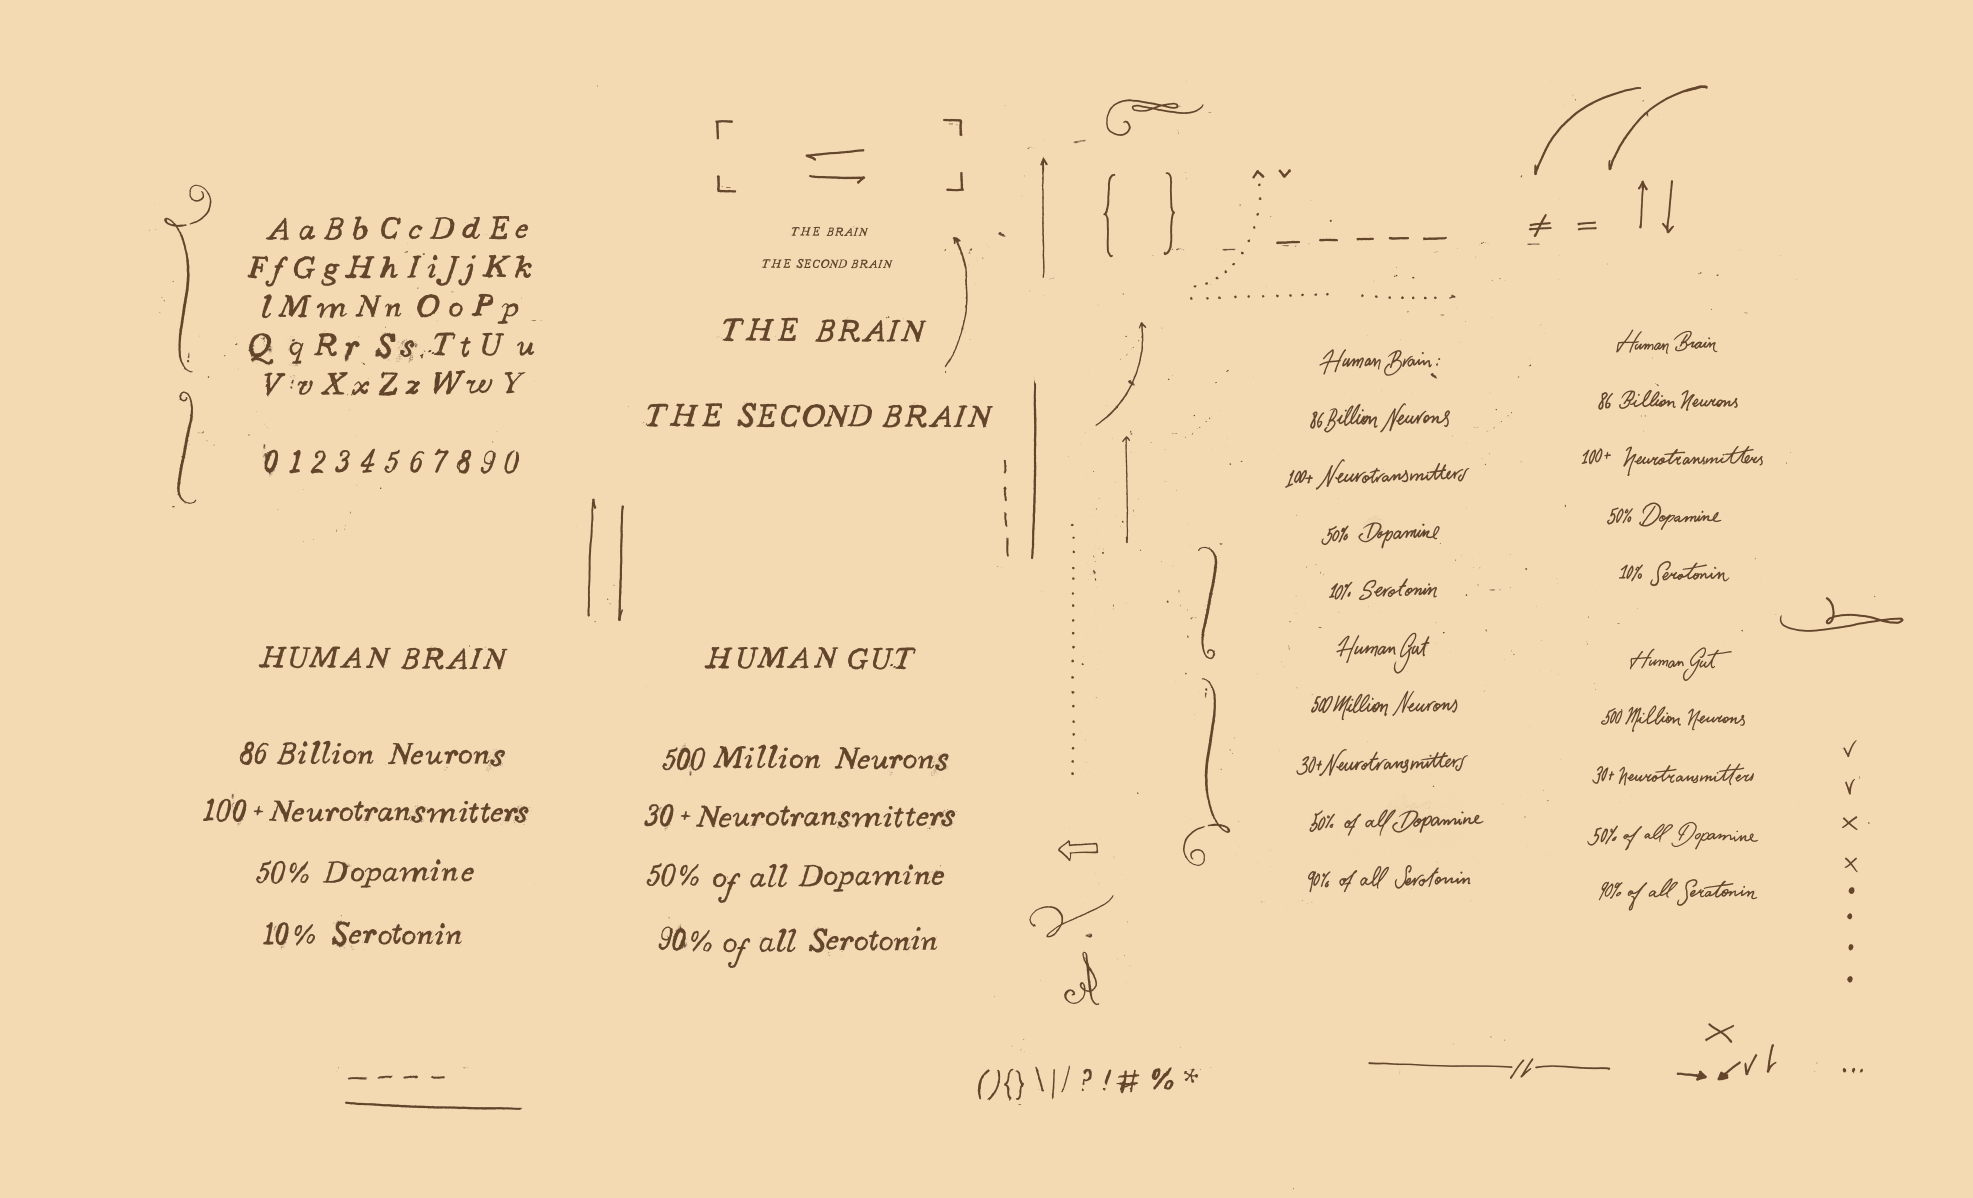 A a B b C c D d E e
F f G g H h I i J j K k
l M m N n O o P p
Q q R r S s T t U u
V v X x Z z W w Y
0 1 2 3 4 5 6 7 8 9 0
THE BRAIN
THE SECOND BRAIN
THE BRAIN
THE SECOND BRAIN
{ }
≠ =
HUMAN BRAIN
86 Billion Neurons
100 + Neurotransmitters
50% Dopamine
10% Serotonin
HUMAN GUT
500 Million Neurons
30 + Neurotransmitters
50% of all Dopamine
90% of all Serotonin
Human Brain:
86 Billion Neurons
100+ Neurotransmitters
50% Dopamine
10% Serotonin
Human Gut
500 Million Neurons
30+ Neurotransmitters
50% of all Dopamine
90% of all Serotonin
Human Brain
86 Billion Neurons
100+ Neurotransmitters
50% Dopamine
10% Serotonin
Human Gut
500 Million Neurons
30+ Neurotransmitters
50% of all Dopamine
90% of all Seratonin
( ) { } \ | / ? ! # % *
...